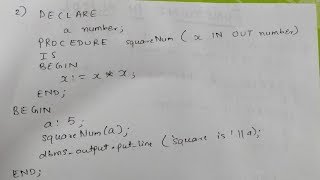 2) DECLARE
a number;
PROCEDURE squareNum ( x IN OUT number)
IS
BEGIN
x := x * x;
END;
BEGIN
a: 5;
squareNum(a);
dbms_output.put_line ('square is' || a);
END;